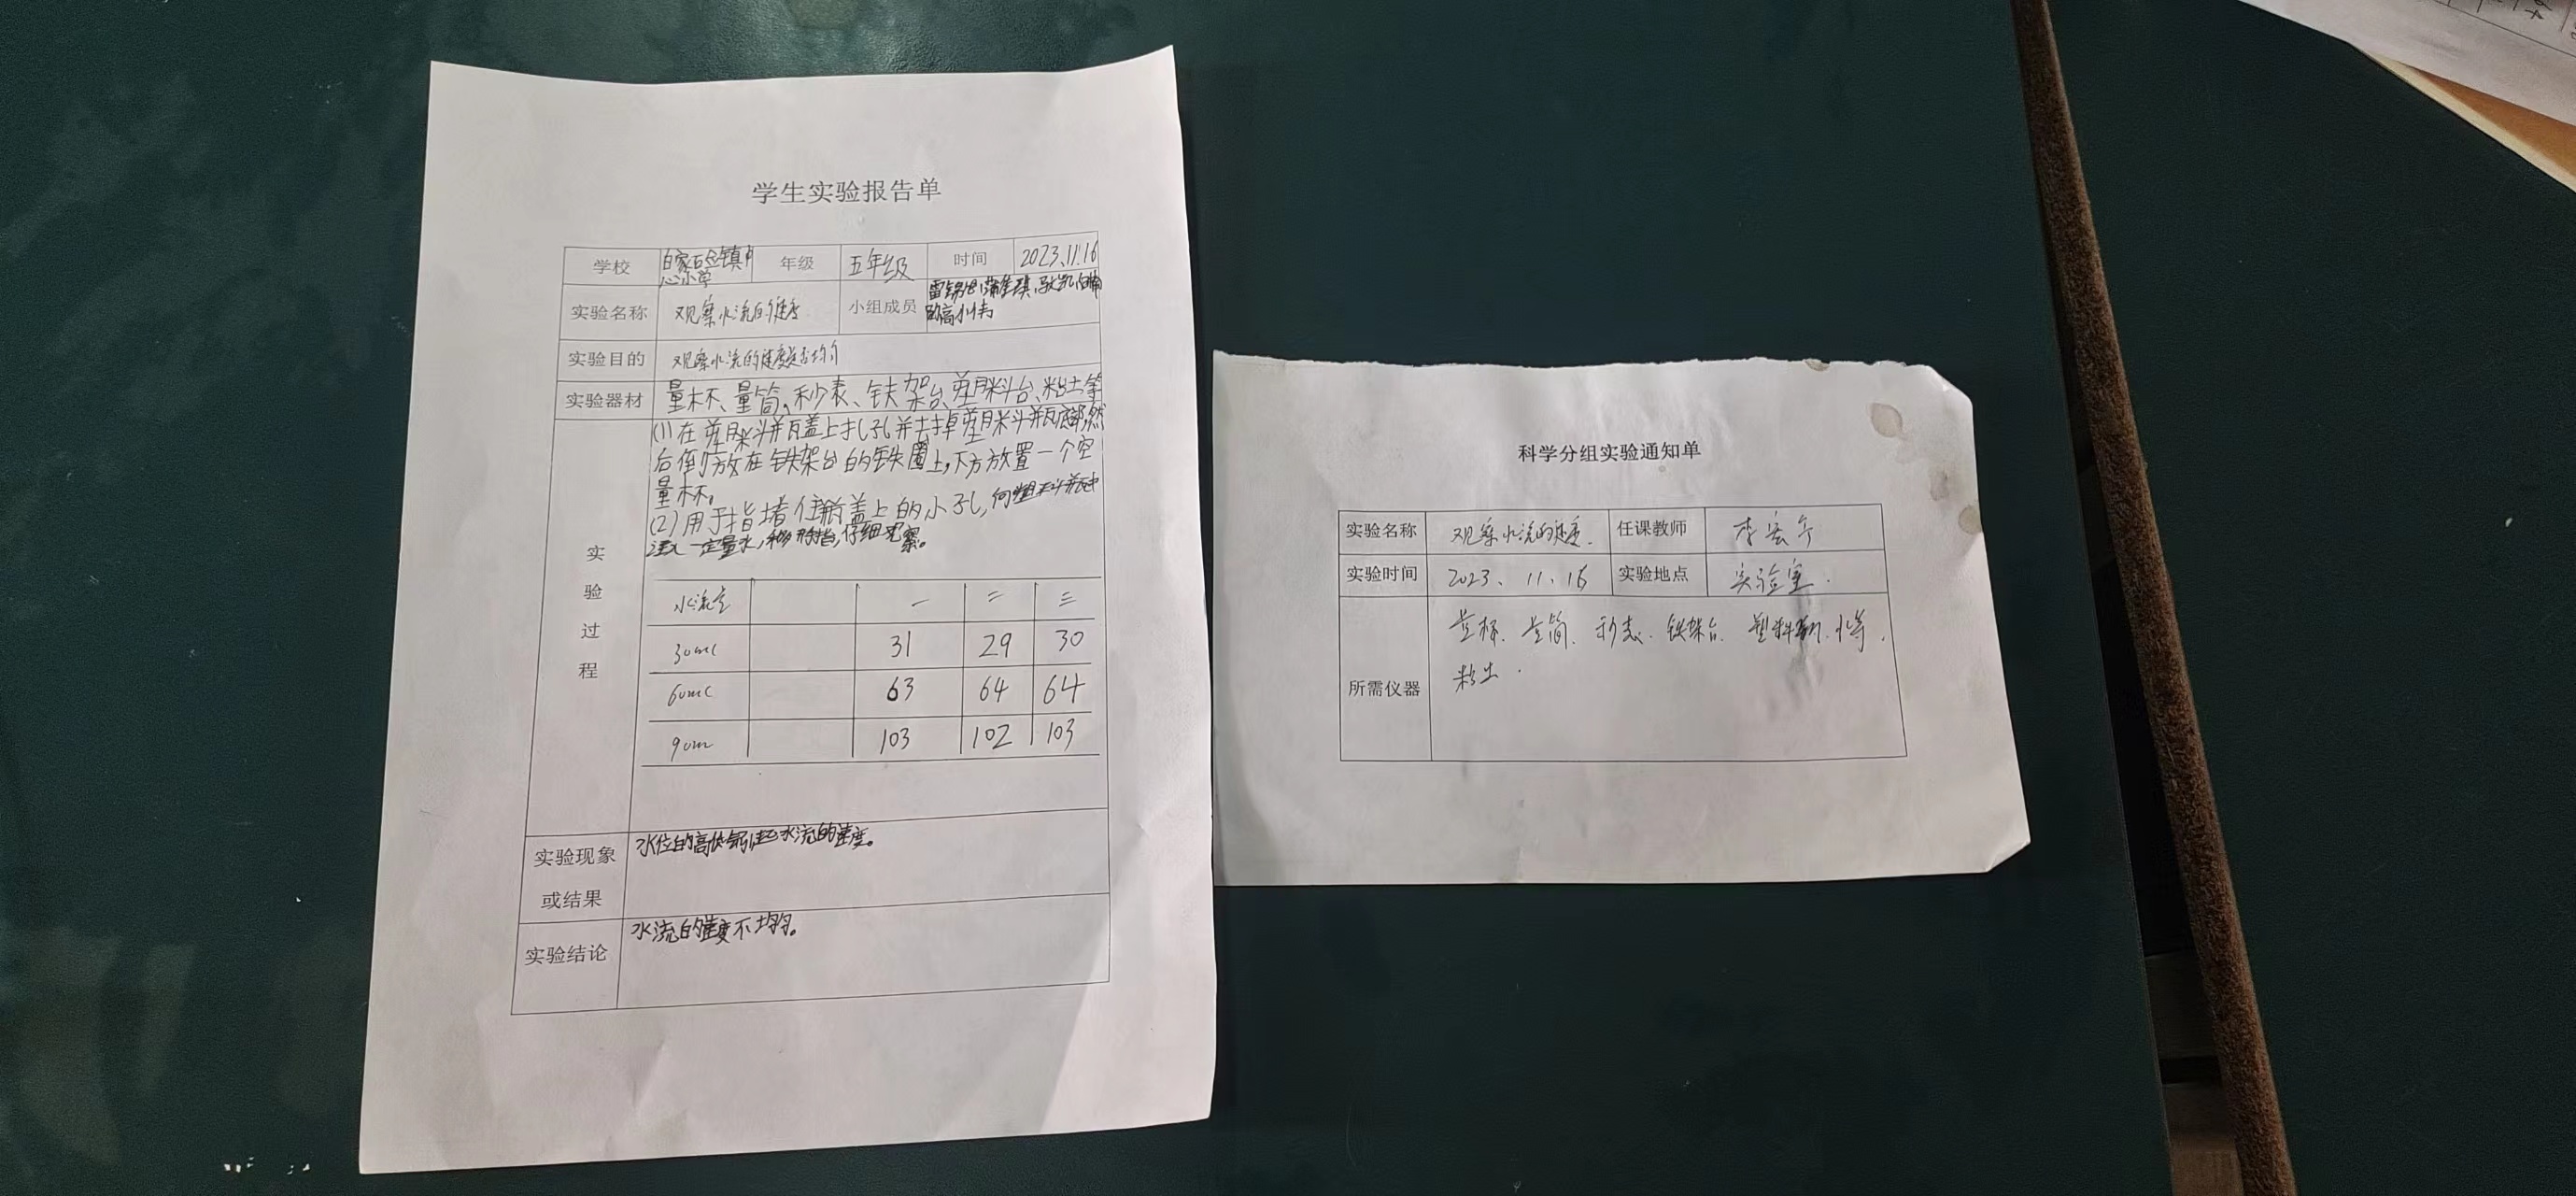 学生实验报告单
学校 白家石仓镇中心小学 年级 五年级 时间 2023.11.16
实验名称 观察水流的速度 小组成员
实验目的 观察水流的速度是否均匀
实验器材 量杯、量筒、秒表、铁架台、塑料台、粘土等
实验过程
(1)在塑料瓶盖上扎孔并去掉塑料瓶底部然
后倒放在铁架台的铁圈上,下方放置一个空
量杯。
(2)用手指堵住瓶盖上的小孔,向塑料瓶中
注入一定量水,移开手指,仔细观察。
水流量 一 二 三
30ml 31 29 30
60ml 63 64 64
90ml 103 102 103
实验现象或结果 水位的高低 水流的速度。
实验结论 水流的速度不均匀。
科学分组实验通知单
实验名称 观察水流的速度. 任课教师
实验时间 2023、11、16 实验地点 实验室.
所需仪器 量杯、量筒、秒表、铁架台、塑料瓶、水等、
粘土.